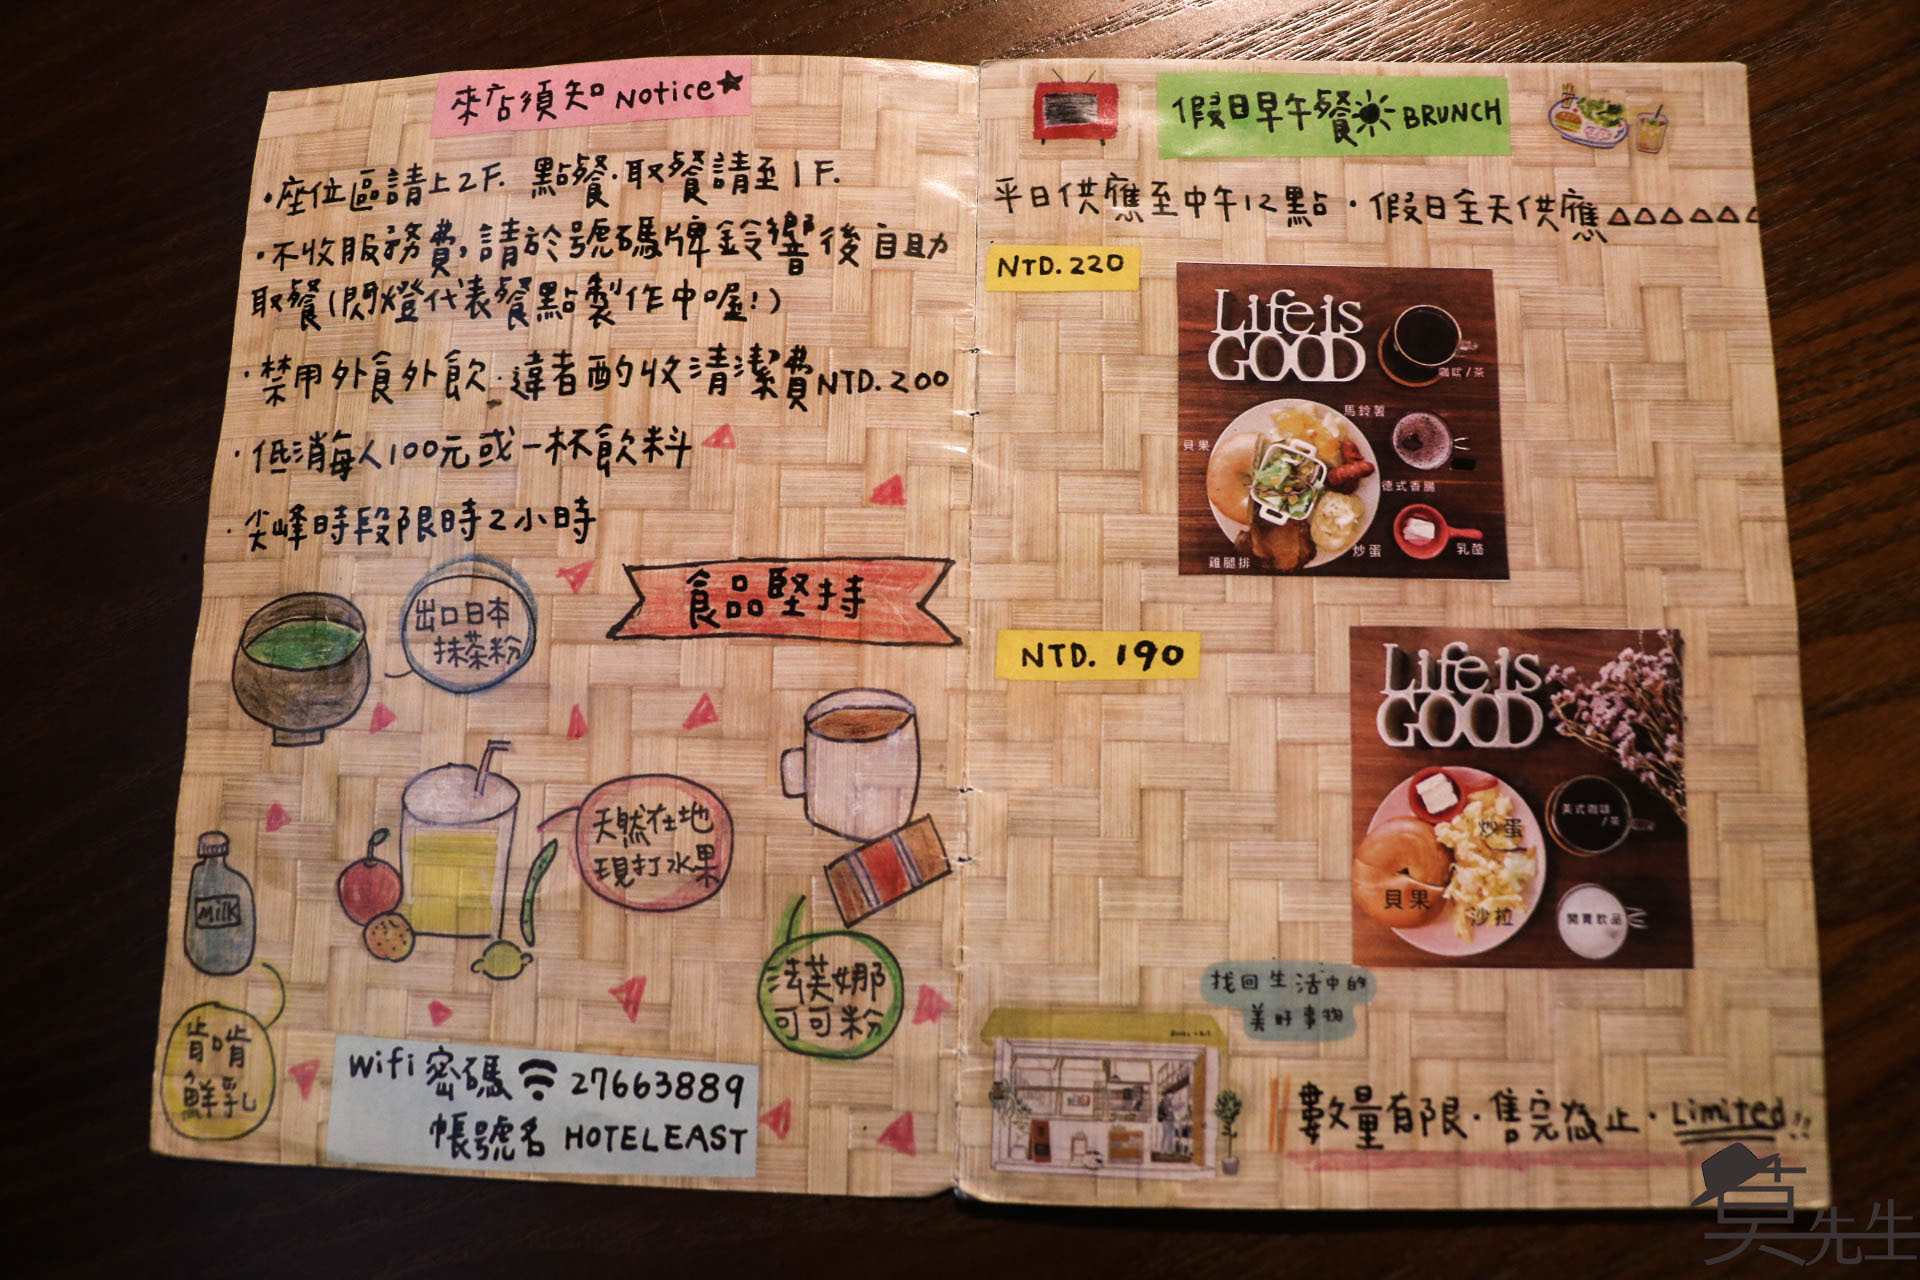 來店須知 Notice★
・座位區請上2F. 點餐・取餐請至1F.
・不收服務費,請於號碼牌鈴響後自助
取餐(閃燈代表餐點製作中喔!)
・禁用外食外飲・違者酌收清潔費NTD.200
・低消每人100元或一杯飲料
・尖峰時段限時2小時
食品堅持
出口日本
抹茶粉
天然在地
現打水果
MILK
法芙娜
可可粉
肯啃
鮮乳
Wifi 密碼 27663889
帳號名 HOTELEAST
假日早午餐 BRUNCH
平日供應至中午12點・假日全天供應
NTD.220
Life is
GOOD
咖啡/茶
馬鈴薯
貝果
德式香腸
炒蛋
乳酪
雞腿排
NTD. 190
Life is
GOOD
美式咖啡
/茶
炒蛋
貝果
沙拉
開胃飲品
找回生活中的
美好事物
數量有限・售完為止・Limited!!
莫先生